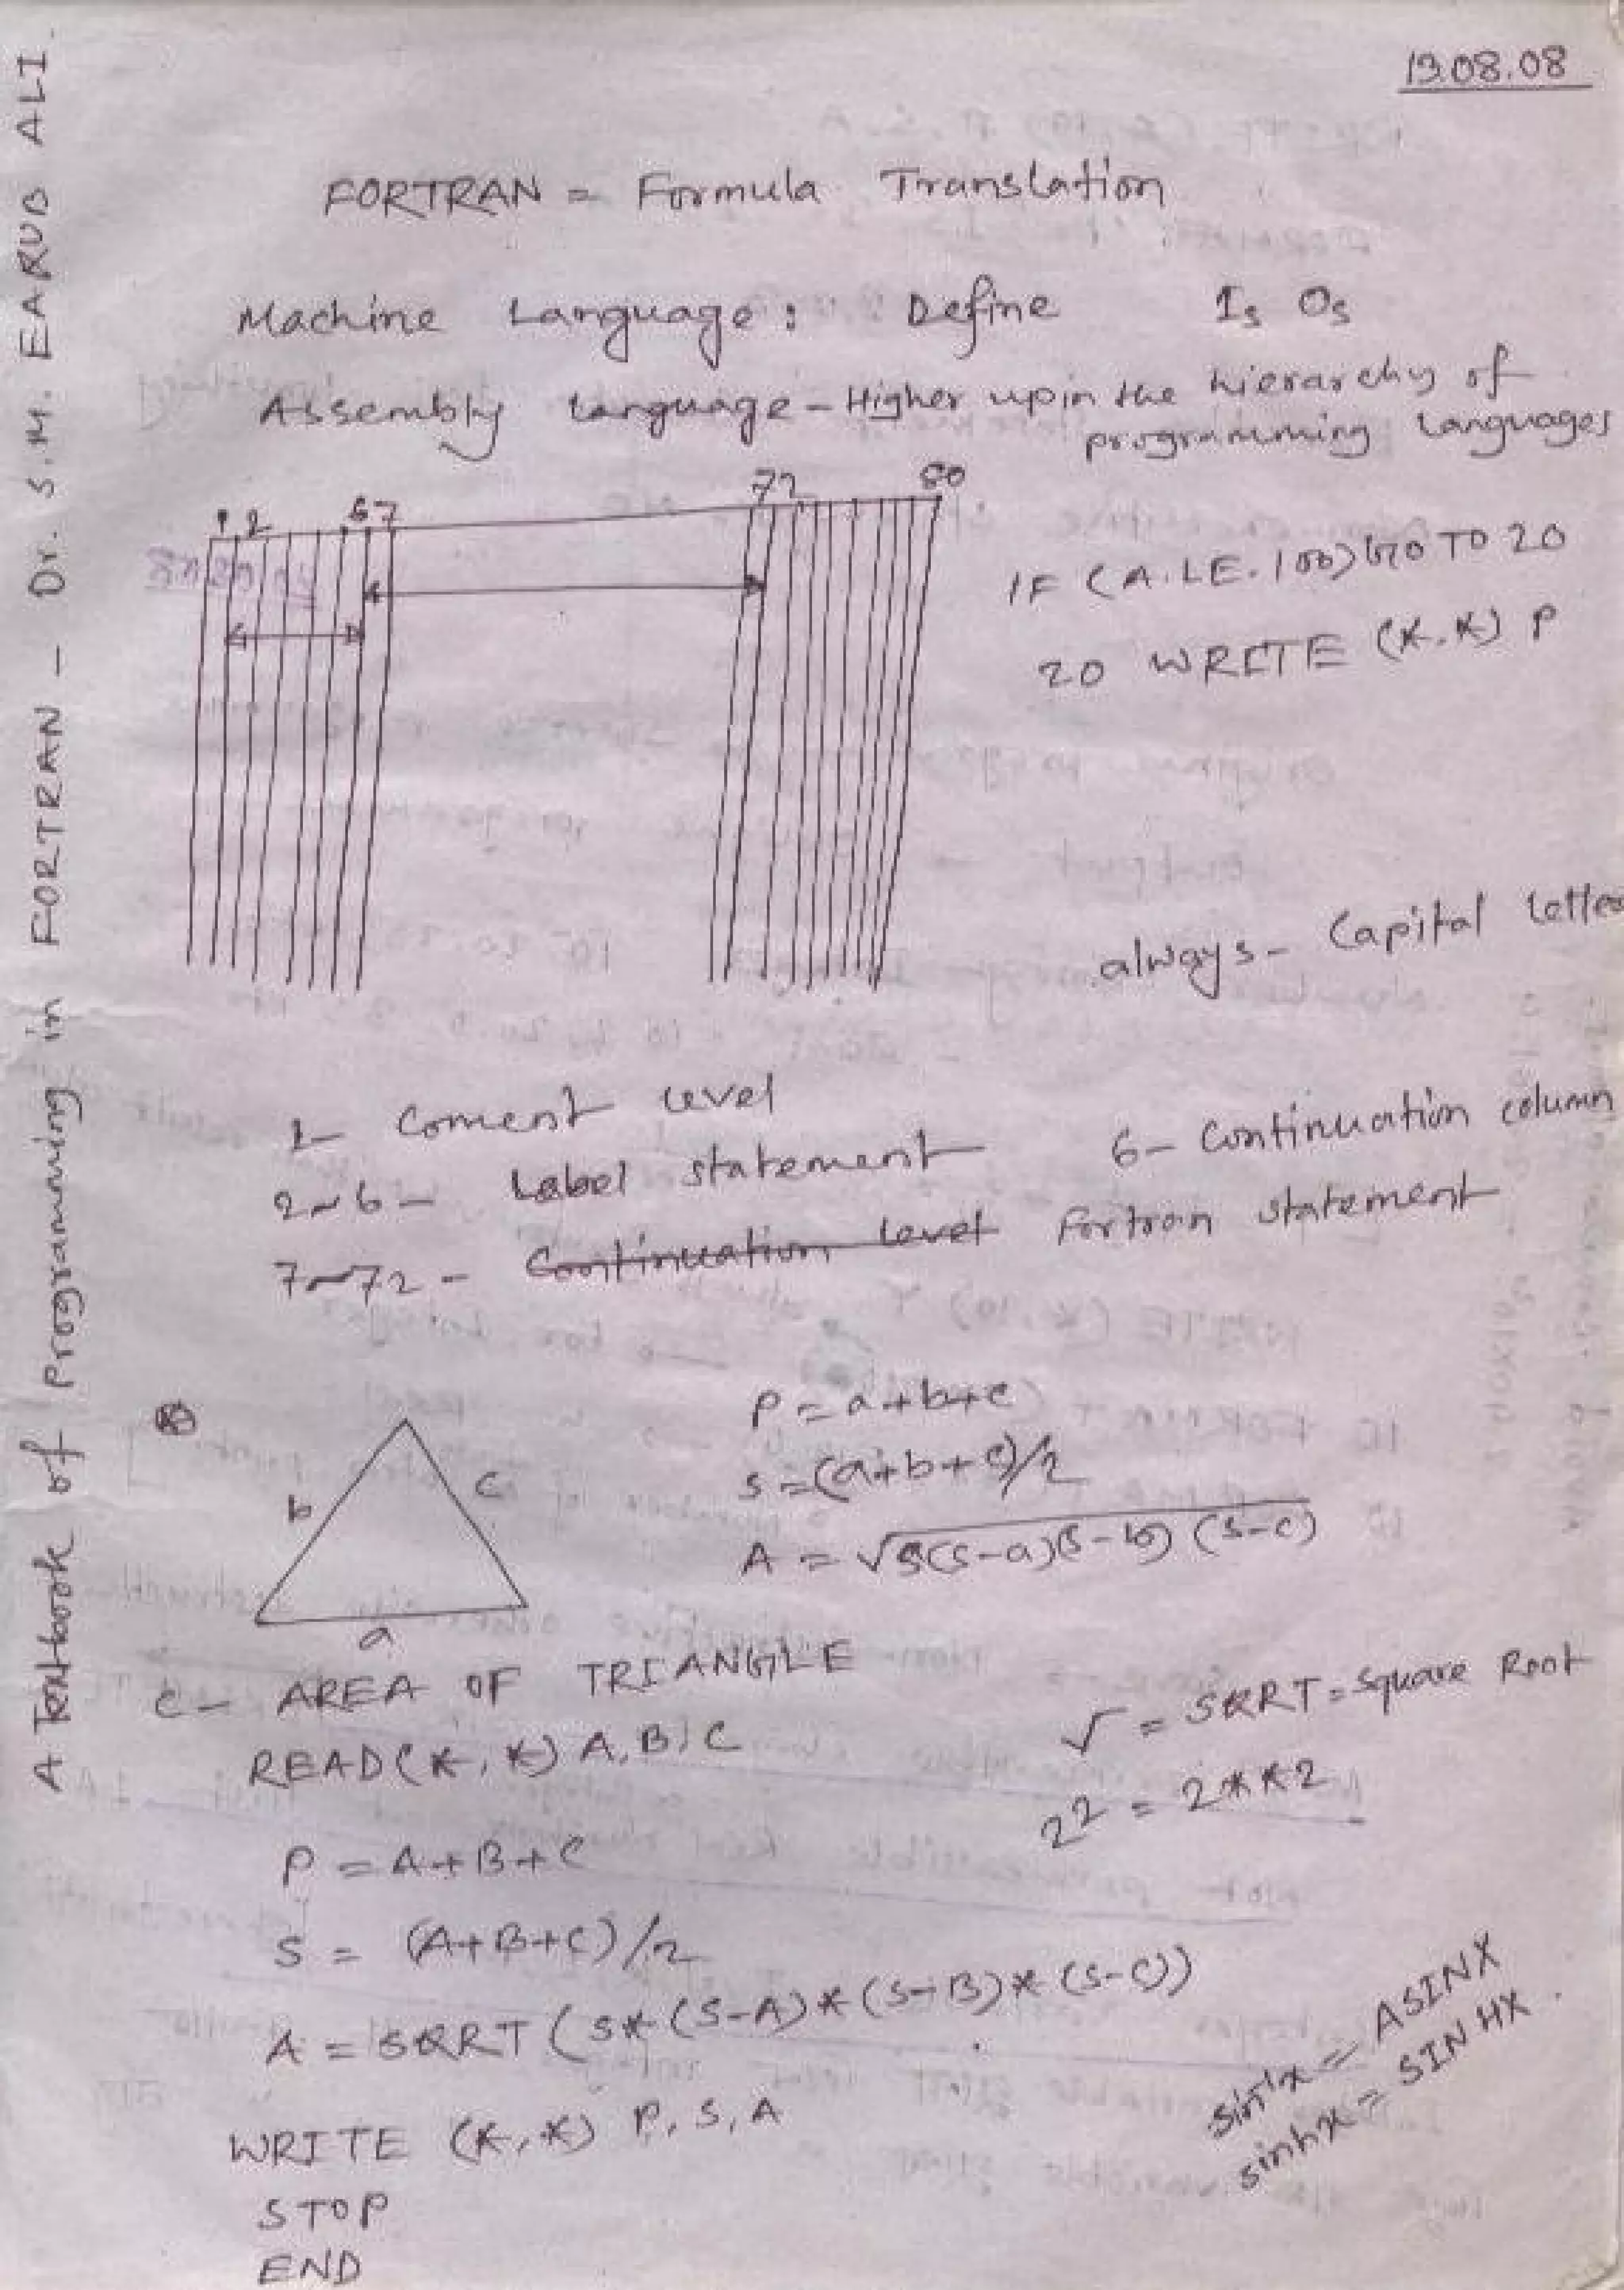 19.08.08
A Textbook of Programming in FORTRAN - Dr. S.M. EARUB ALI.
FORTRAN = Formula Translation
Machine Language : Define 1s 0s
Assembly Language - Higher up in the hierarchy of
programming Languages
1 2 6 7 72 80
IF (A.LE.100) GO TO 20
20 WRITE (*.*) P
always - Capital Letter
1- Coment level
2~6 - Label statement 6- Continuation column
7~72 - Continuation level Fortran statement
b c a
P = a+b+c
S = (a+b+c)/2
A = √S(S-a)(S-b)(S-c)
C - AREA OF TRIANGLE
READ(*,*) A,B,C
√ = SQRT = Square Root
2² = 2**2
P = A+B+C
S = (A+B+C)/2
A = SQRT (S*(S-A)*(S-B)*(S-C))
sin⁻¹x = ASINX
sinhx = SIN HX.
WRITE (*,*) P, S, A
STOP
END